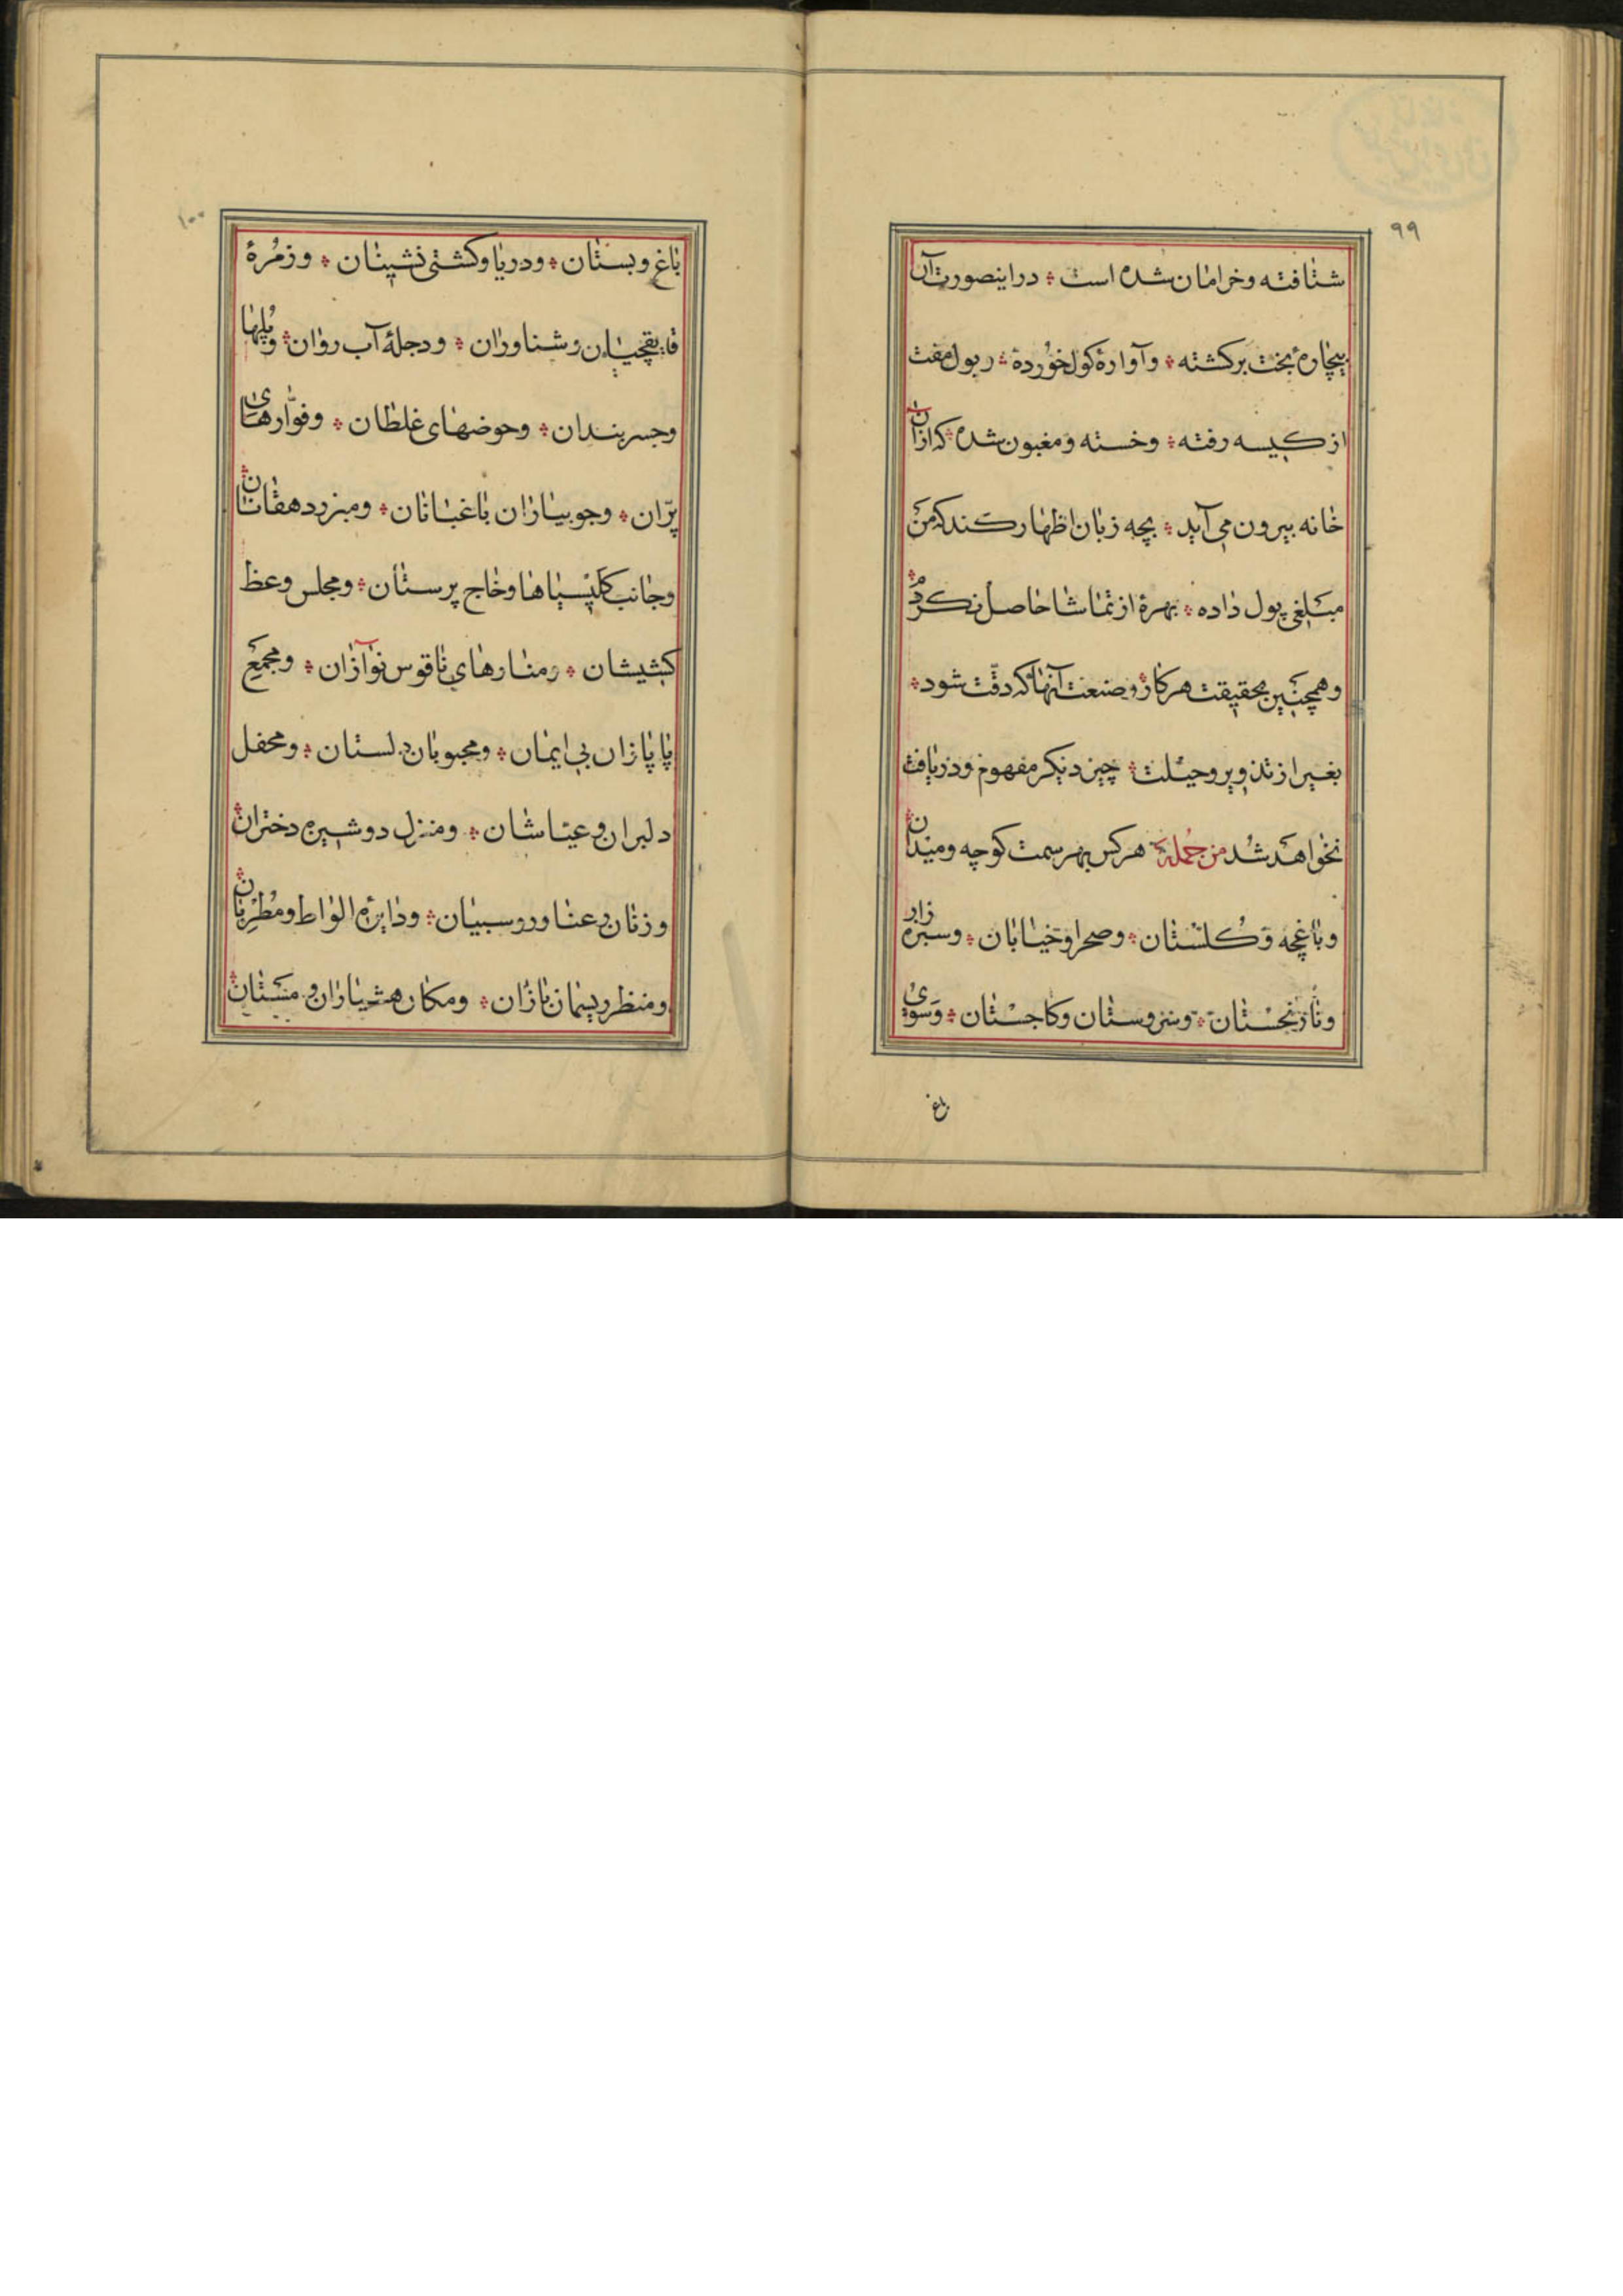 ۹۹
شتافته وخرامان شده است ؞ دراینصورت آن
بیچارهٔ بخت برکشته ؞ وآوارهٔ کول خورده ؞ وپول مفت
از کیسه رفته ؞ وخسته ومغبون شده که ازان
خانه بیرون می آید ؞ بچه زبان اظهار کند که من
مبلغی پول داده ؞ بهرهٔ از تماشا حاصل نکردم ؞
وهمچنین بحقیقت هرکار وصنعت آنها که دقّت شود ؞
بغیر از تذویر وحیلت ؞ چیز دیکر مفهوم ودریافت
نخواهد شد من جمله هرکس بهر سمت کوچه ومیدان ؞
وباغچه وکلستان ؞ وصحرا وخیابان ؞ وسبزه زار
ونارنجستان ؞ وسروستان وکاجستان ؞ وسوی
باغ
۱۰۰
باغ وبستان ؞ ودریا وکشتی نشینان ؞ وزمرهٔ
قایقچیان وشناوران ؞ ودجلهٔ آب روان ؞ وپلها
وجسربندان ؞ وحوضهای غلطان ؞ وفوّارهای
پرّان ؞ وجوبیاران باغبانان ؞ ومبزر دهقانان ؞
وجانب کلیسیاها وخاج پرستان ؞ ومجلس وعظ
کشیشان ؞ ومنارهای ناقوس نوآزان ؞ ومجمع
پاپازان بی ایمان ؞ ومحبوبان دلستان ؞ ومحفل
دلبران وعیاشان ؞ ومنزل دوشیزه دختران ؞
وزنان رعنا وروسبیان ؞ ودایرهٔ الواط ومطربان ؞
ومنظر ریسمان بازان ؞ ومکان هشیاران ومستان ؞